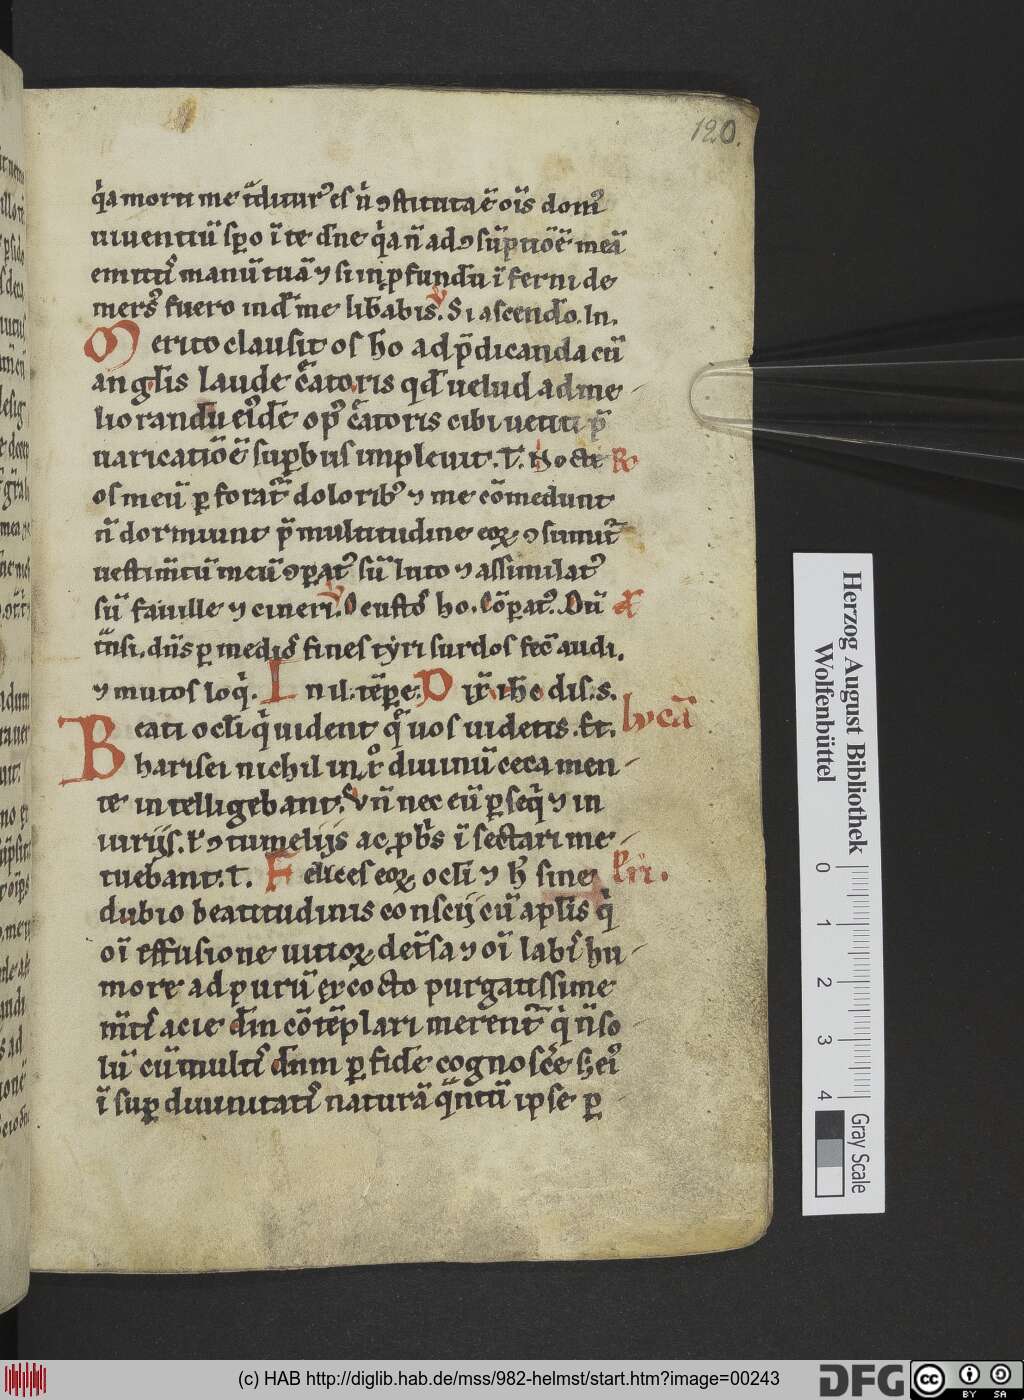 120.
q̾a morti me t̾diturꝰ es ñ ꝯstituta ē oīs domꝰ
uiuentiū sꝑo ī te dn̄e q̾a ñ ad ꝯsūptiōē meā
emittꝭ manū tuā ⁊ si in ꝓfundū īferni de
mersꝰ fuero ind̄ me lib̄abis. V Si ascendo. In.
Merito clausit os ho ad p̄dicanda cū
angl̄is laude c̄atoris qd̄ uelud ad me
liorandū eiꝰdē opꝰ c̄atoris cibi uetiti p̄
uaricatiōē suꝑbus impleuit. T. Nocte R
os meū ꝑforat̄ doloribꝰ ⁊ me cōmedunt
ñ dormiunt p̄ multitudine eoꝝ ꝯsumit̄
uestim̄tū meū ꝯꝑatꝰ sū luto ⁊ assimilatꝰ
sū fauille ⁊ cineri. V Deustōs ho. Cōꝑatꝰ. Dū ex
t̄nsi. dn̄s ꝑ medios fines tyri surdos fec̄ audi.
⁊ mutos loq̾. In il. tēpe. Dix̄ ihc dis. s.
Beati ocl̄i q̾ uident q̄ uos uidetis. Et. lucā
Pharisei nichil in xr̄o diuinū ceca men
te intelligebant. Vn̄ nec eū ꝑseq̾ ⁊ in
iuriis. ł ꝯtumeliis ac ꝓbris īsectari me
tuebant. T. Felices eoꝝ ocl̄i ⁊ h̄ sine
dubio beatitudinis conscii cū apl̄is q̾
oī effusione uitioꝝ det̄sa ⁊ oī labis hu
more ad purū excocto purgatissime
m̄tis acie dm̄ cōtēplari merent̄ q̾ ñ so
lū cū multis dnm ꝑ fidē cognosc̄e s; eiꝰ
ī suꝑ diuinitatis naturā q̄ntū ipse ꝑ
Herzog August Bibliothek
Wolfenbüttel
0 1 2 3 4
Gray Scale
(c) HAB http://diglib.hab.de/mss/982-helmst/start.htm?image=00243
DFG
cc BY SA